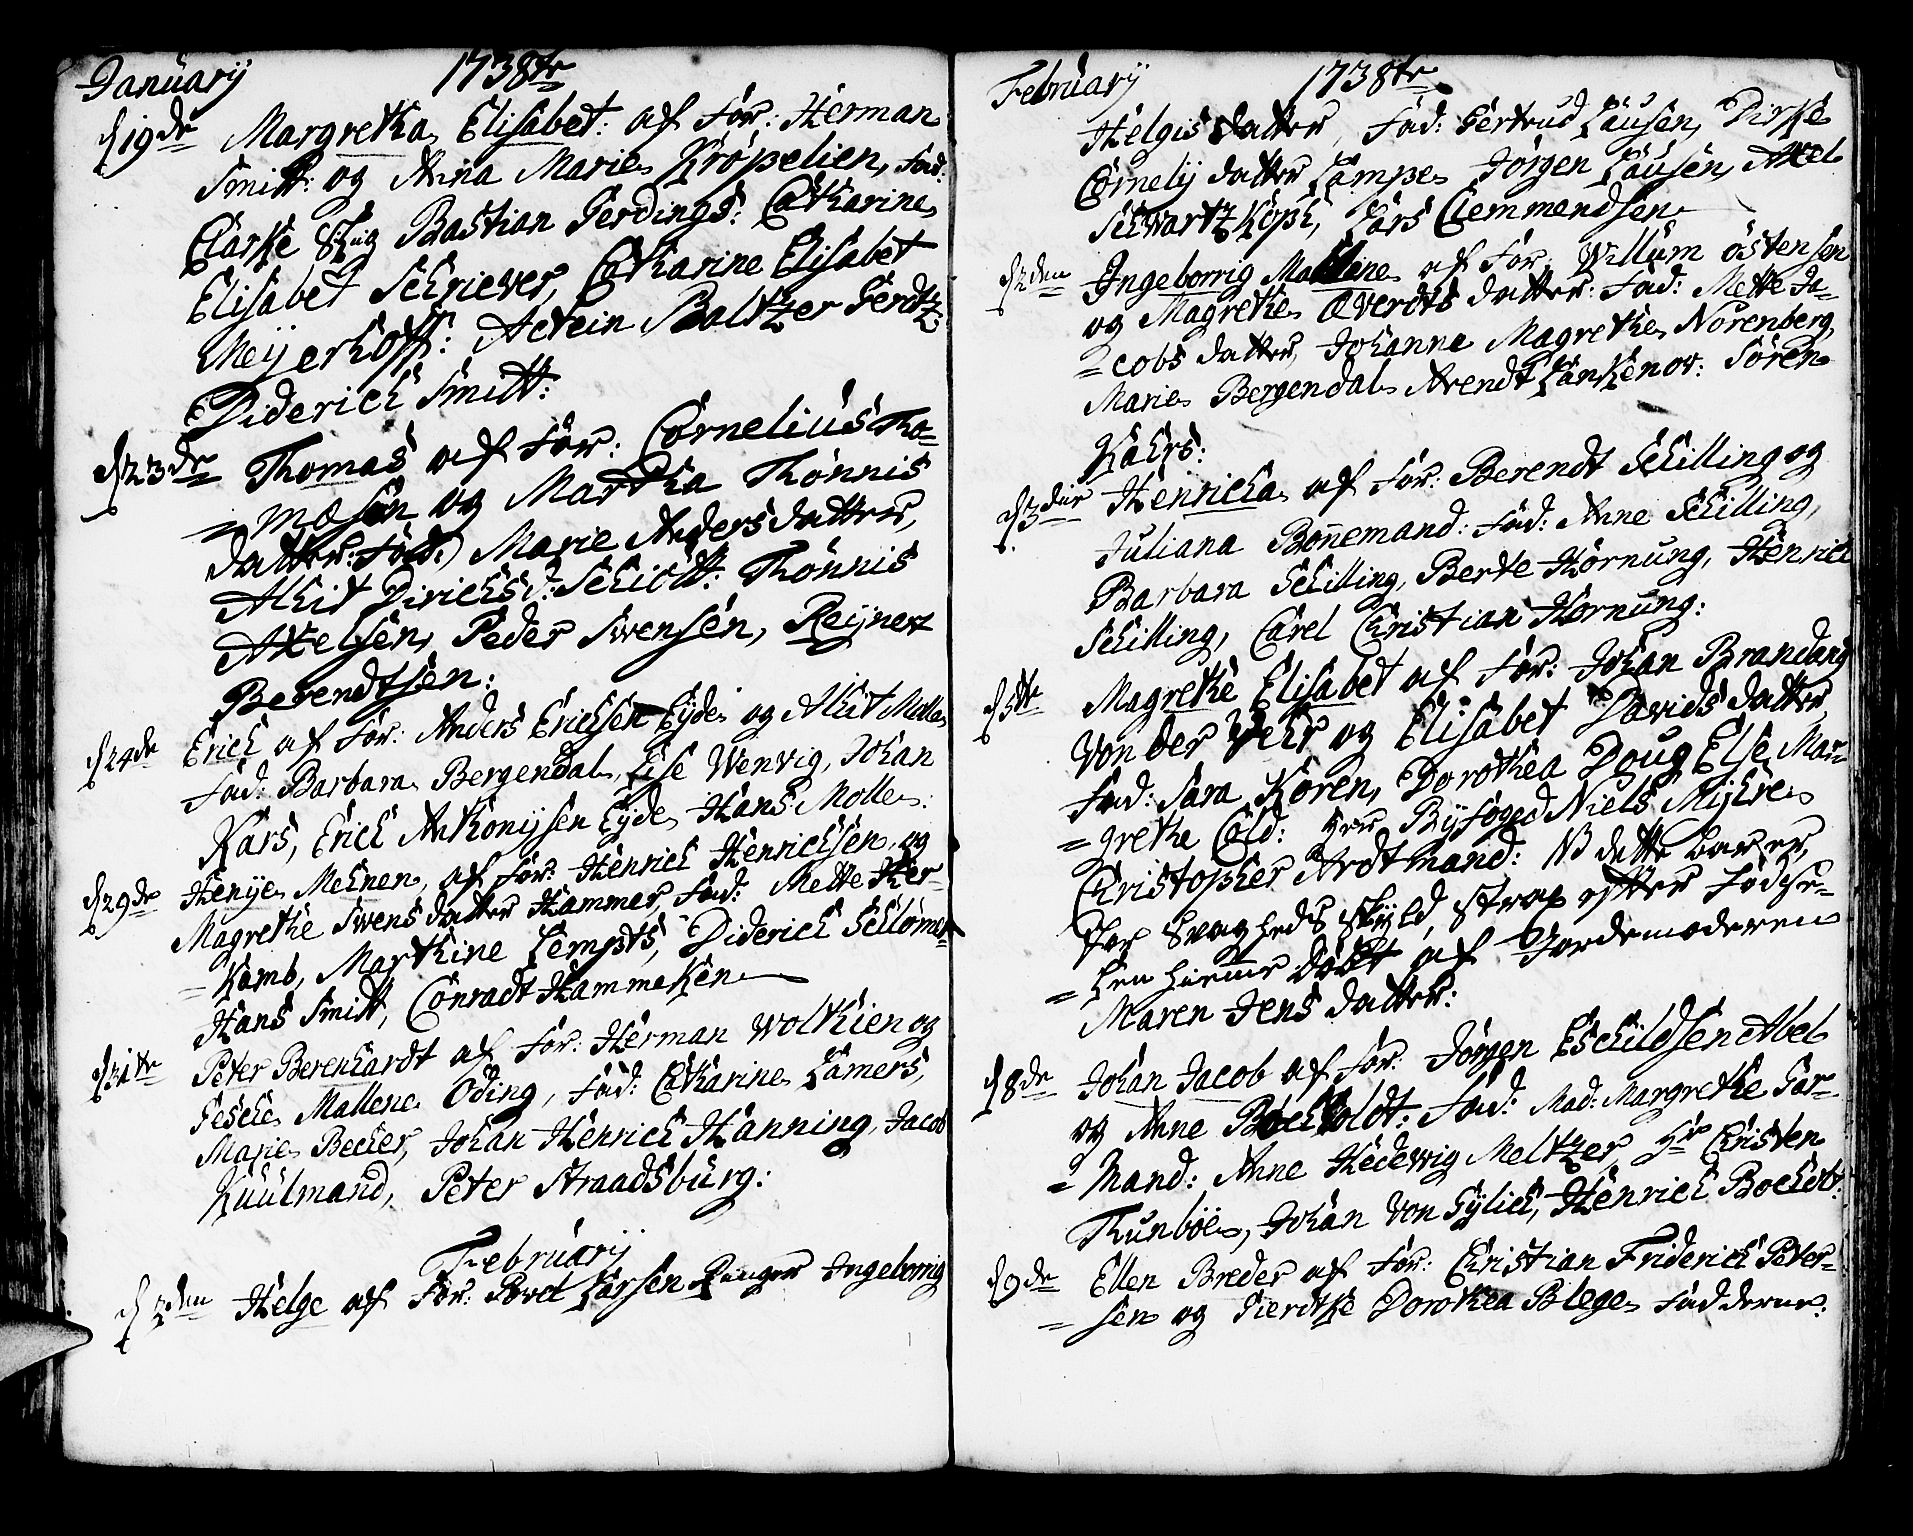 January 1738te
d 19de Margretha Elisabet: af For: Herman
Smitt: og Anna Marie Kröpelien, Fad:
Clarke Skug Bastian Gerdings: Catharine
Elisabet Schriever, Catharine Elisabet
Meijerhoff: Actein Baltzer Gerdtz
Diderich Smitt:
d 23de Thomas af For: Cornelius Tho-
=masen og Martha Thönnis
datter: Fad: Marie Andersdatter,
Alhit Dirichs d: Schiött: Thönnis
Axelsen, Peder Swensen, Reijnert
Berendtsen:
d 24de Erich af For: Anders Erichsen Eyde og Alhit Molle
Fad: Barbara Bergendal, Lise Wenvig, Johan
Kars, Erich Anthonijsen Eyde Hans Molle:
d 29de Henije Mehnen, af For: Henrich Henrichsen, og
Magrethe Swens datter Hammer, Fad: Mette Her-
=kamb, Marthine Lempts, Diderich Schlömer
Hans Smitt, Conradt Hammeken
d 31te Peter Berenhardt af For: Herman Wolthien og
Gesche Mallene Öding, Fad: Catharine Lamers,
Marie Becher, Johan Henrich Hänning, Jacob
Kuulmand, Peter Straadsburg:
Februarij
d 2den Helge af For: Povel Larsen Ranger Ingeborrig
Februarij 1738te
Helgis datter, Fad: Gertrud Lausen, Dirke
Cornelij datter Lampe Jörgen Lausen, Axel
Schwartzkoph, Lars Clemmendsen
d 2den Ingeborrig Mallene af For: Willum Östensen
og Magrethe Everdts datter: Fad: Mette Ja-
=cobs datter, Johanne Magrethe Norenberg,
Marie Bergendal Arendt Lankenov: Sören
Kahrs:
d 3die Henricha af For: Berendt Schilling og
Juliana Bonnemand: Fad: Anne Schilling,
Barbara Schilling, Berte Hornung, Henrich
Schilling, Carel Christian Hornung:
d 5te Magrethe Elisabet af For: Johan Brandang
Von der Vehr og Elisabet Davids datter,
Fad: Sara Koren, Dorothea Doug Else Mar-
=grethe Cold: Herr Byfoged Niels Mijhre
Christopher Ardtmand: NB dette barn er,
for Svagheds skyld, strax efter Födse-
=len hiemme döbt af Jordemoderen
Maren Jens datter:
d 8de Johan Jacob af For: Jörgen Eschildsen Abel
og Anne Bochholdt: Fad: Mad: Margrethe Gar-
=mand: Anne Hedewig Meltzer, Hr Christen
Thunböe, Johan Von Gylich, Henrich Bochdt:
d 9de Ellen Breder af For: Christian Friderich Peter-
=sen og Gierthe Dorothea Blege Fadderne: